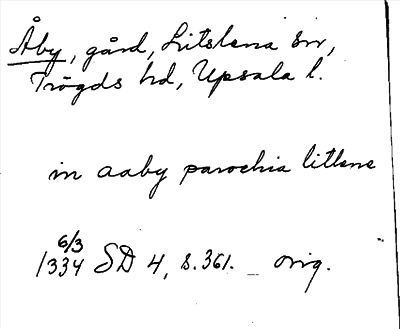 Åby, gård, Litslena sn,
Trögds hd, Upsala l.
in aaby parochia litlene
6/3
1334 SD 4, s. 361. _ orig.